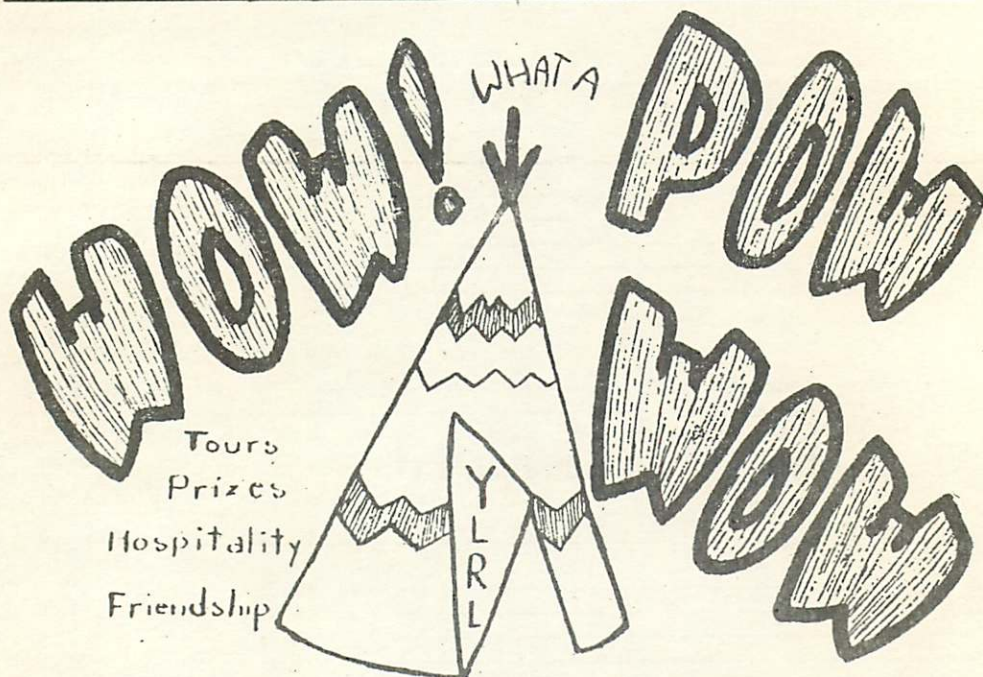 WOW!
WHAT A
POW
WOW
Tours
Prizes
Hospitality
Friendship
YLRL